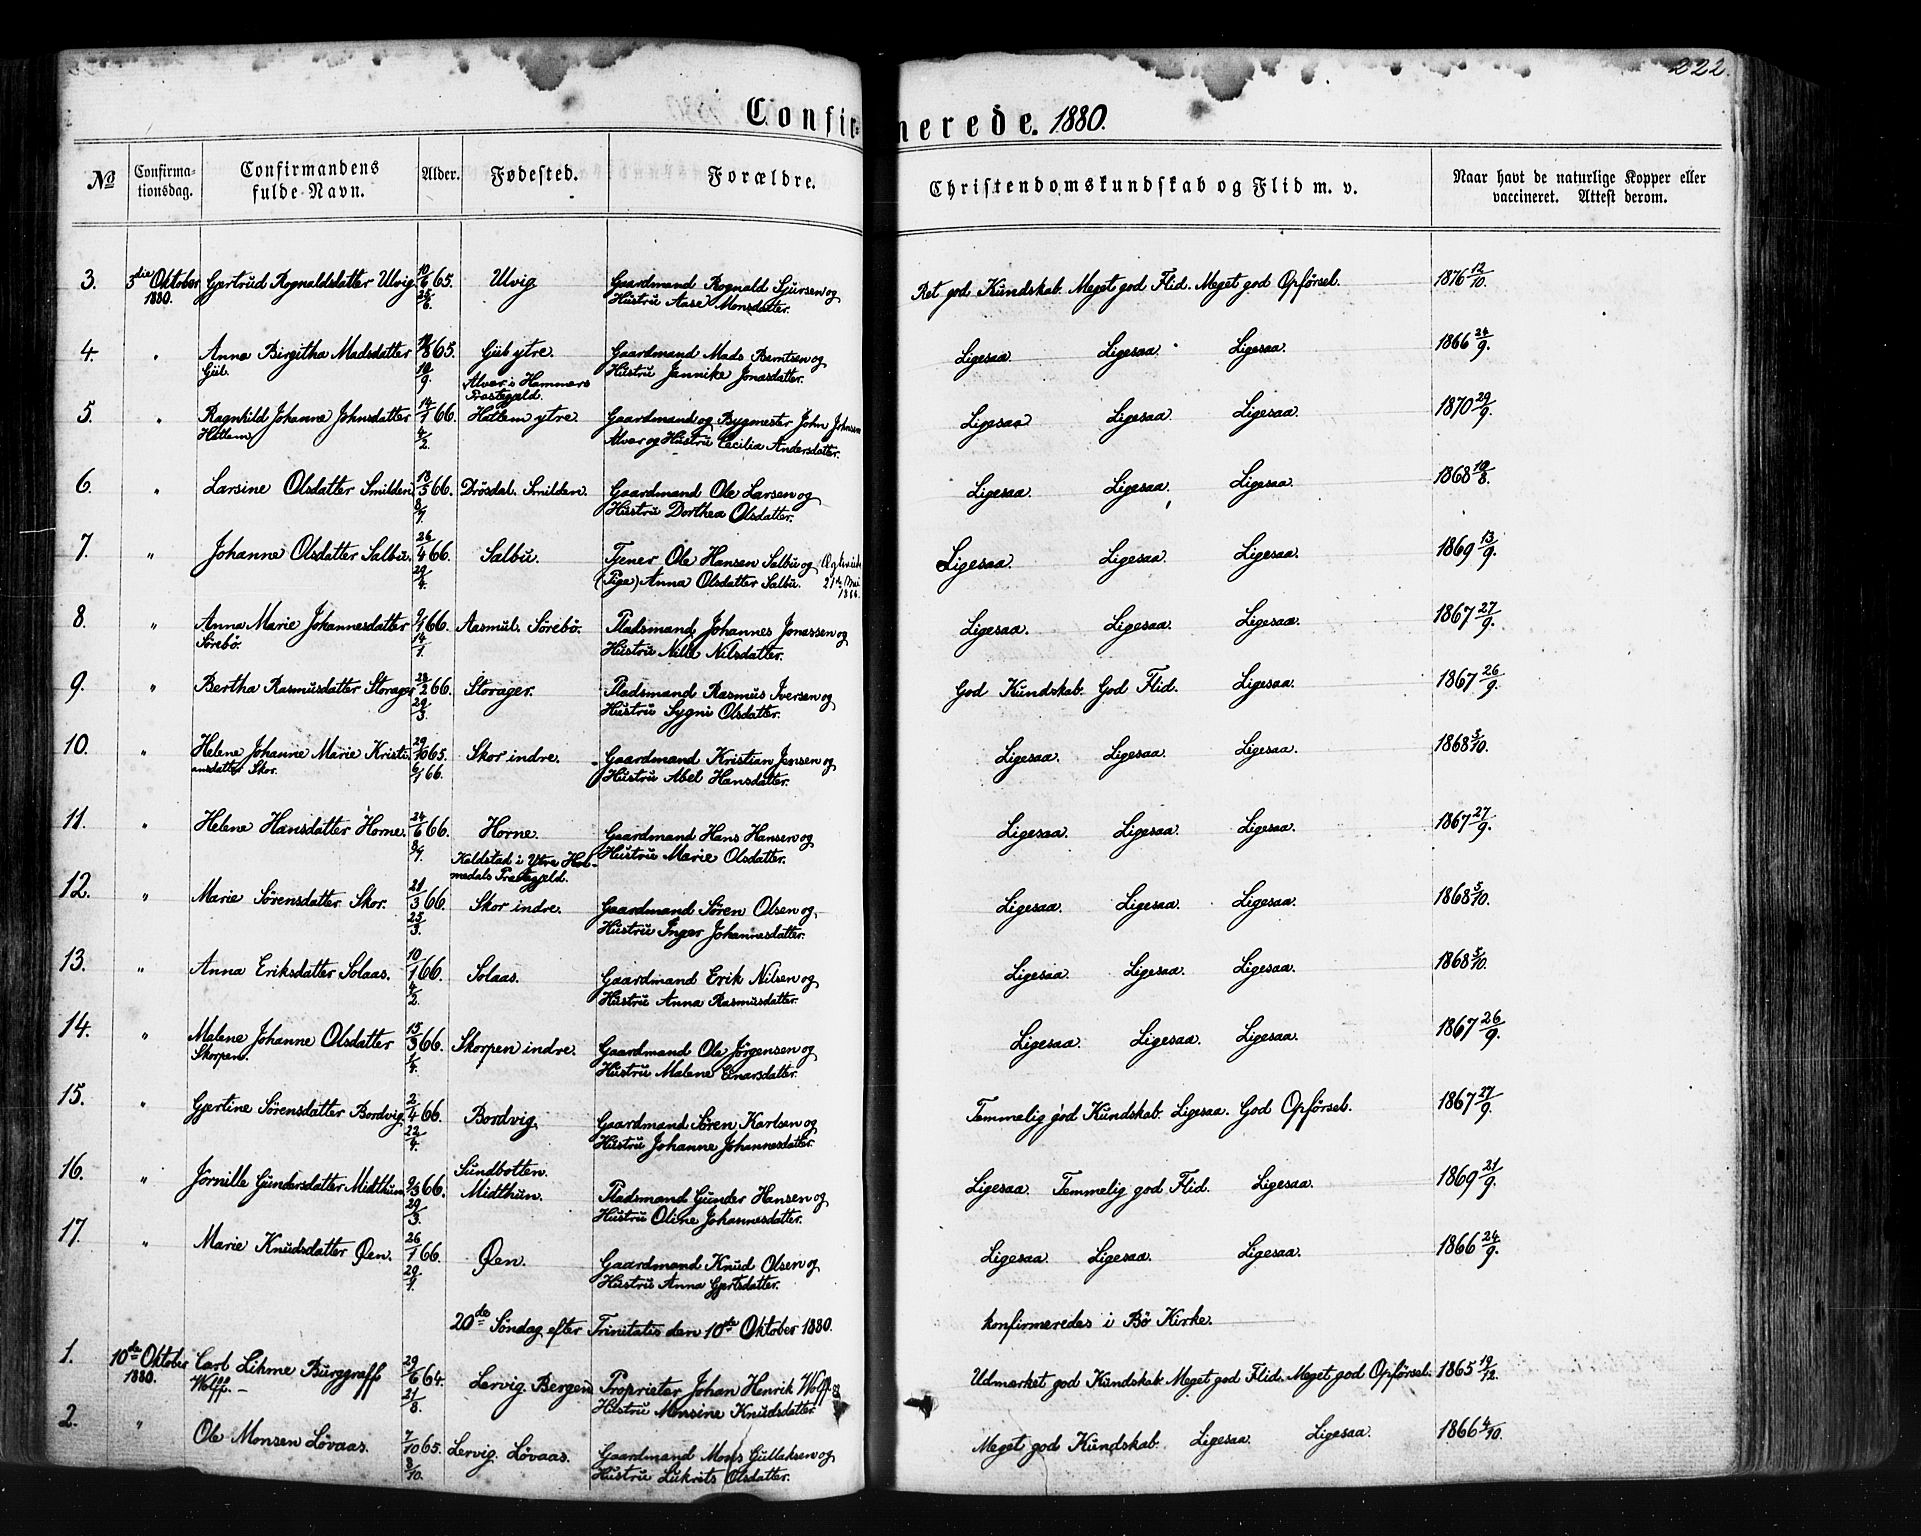 222.
Confirmerede. 1880.
No Confirmationsdag. Confirmandens fulde Navn. Alder. Fødested. Forældre. Christendomskundskab og Flid m. v. Naar havt de naturlige Kopper eller vaccineret. Attest derom.
3. 3die Oktober Gjertrud Rognaldsdatter Ulvig. 10/6 65. Ulvig Gaardmand Rognald Sjursen og Ret god Kundskab. Meget god Flid. Meget god Opførsel. 1876 12/10.
1880. 25/6. Hustru Aase Monsdatter.
4. " Anna Birgitha Madsdatter 65. Gub ytre. Gaardmand Mads Berntsen og Ligesaa. Ligesaa. Ligesaa. 1866 24/9.
Gub. 10/9. Hustru Jannike Jonasdatter.
Alver i Hammers
Præstegjæld.
5. " Ragnhild Johanne Johnsdatter 14/1 66. Hatlem ytre. Gaardmand og Bygmester John Johnsen Ligesaa Ligesaa. Ligesaa. 1870 29/9.
Hatlem 4/2. Alver og Hustru Cecilia Andersdatter.
6. " Larsine Olsdatter Smilden 66. Drösdal. Smilden. Gaardmand Ole Larsen og Ligesaa. Ligesaa. Ligesaa. 1868 10/8.
Hustru Dorthea Olsdatter.
7. " Johanne Olsdatter Salbu. 26/4 66. Salbu. Tjener Ole Hansen Salbu og Ligesaa. Ligesaa. Ligesaa. 1869 13/9.
29/4. (Pige) Anna Olsdatter Salbu. 21de Mai
1866.
8. " Anna Marie Johannesdatter 9/1 66. Aasmul. Sörebö. Pladsmand Johannes Jonassen og Ligesaa. Ligesaa. Ligesaa. 1867 27/9.
Sörebö. 14/1. Hustru Nille Nilsdatter.
9. " Bertha Rasmusdatter Storager 66. Storager. Pladsmand Rasmus Iversen og God Kundskab. God Flid. Ligesaa. 1867 26/9.
29/3. Hustru Sygni Olsdatter.
10. " Helene Johanne Marie Kristi- 29/10 65. Skor indre. Gaardmand Kristian Jensen og Ligesaa. Ligesaa. Ligesaa. 1868 5/10.
ansdatter Skor. 6/1 66. Hustru Abel Hansdatter.
11. " Helene Hansdatter Horne. 24/6 66. Horne. Gaardmand Hans Hansen og Ligesaa. Ligesaa. Ligesaa. 1867 27/9.
8/7. Hustru Marie Olsdatter.
Kaldstad i Ytre Hol-
medals Præstegjæld.
12. " Marie Sörensdatter Skor. 21/3 66. Skor indre. Gaardmand Sören Olsen og Ligesaa. Ligesaa. Ligesaa. 1868 5/10.
25/3. Hustru Inger Johannesdatter.
13. " Anna Eriksdatter Solaas. 10/1 66. Solaas. Gaardmand Erik Nilsen og Ligesaa. Ligesaa. Ligesaa. 1868 5/10.
4/2. Hustru Anna Rasmusdatter.
14. " Malene Johanne Olsdatter 15/3 66. Skorpen indre. Gaardmand Ole Jörgensen og Ligesaa. Ligesaa. Ligesaa. 1867 26/9.
Skorpen. 1/4. Hustru Malene Einarsdatter.
15. " Gjertine Sörensdatter Bordvig 2/4 66. Bordvig. Gaardmand Sören Karlsen og Temmelig god Kundskab. Ligesaa. God Opförsel. 1867 27/9.
22/4. Hustru Johanne Johannesdatter.
Sundbotten.
16. " Jörnille Gundersdatter Midthun. 9/3 66. Midthun. Pladsmand Gunder Hansen og Ligesaa. Temmelig god Flid. Ligesaa. 1869 21/9.
29/3. Hustru Oline Johannesdatter.
17. " Marie Knudsdatter Øen. 26/1 66. Øen. Gaardmand Knud Olsen og Ligesaa. Ligesaa. Ligesaa. 1866 24/9.
Hustru Anna Gjertsdatter.
20de Söndag efter Trinitatis den 10de Oktober 1880. konfirmeredes i Bö Kirke.
1. 10de Oktober Carl Lihme Burggraff 29/6 64. Lervig. Bergen Proprietær Johan Henrik Wolff og Udmærket god Kundskab. Meget god Flid. Meget god Opförsel. 1865 19/12.
1880. Wolff. 21/8. Hustru Monsine Knudsdatter.
2. " Ole Monsen Lövaas. 7/10 65. Lervig. Lövaas. Gaardmand Mons Gullaksen og Meget god Kundskab. Ligesaa. Ligesaa. 1866 4/10.
8/10. Hustru Lukrits Olsdatter.